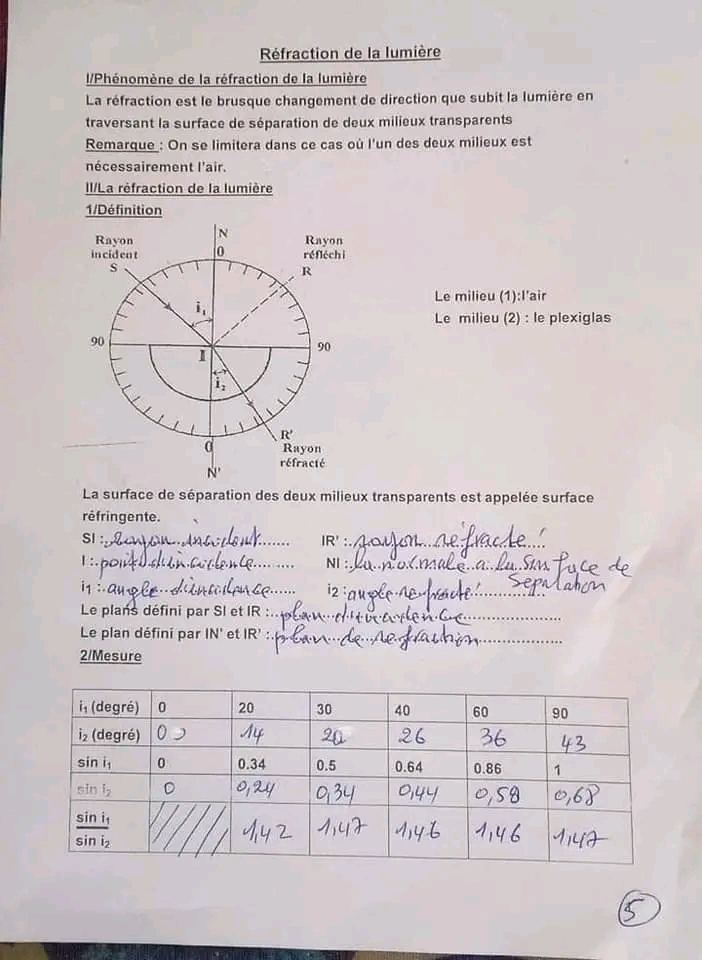 Réfraction de la lumière
I/Phénomène de la réfraction de la lumière
La réfraction est le brusque changement de direction que subit la lumière en
traversant la surface de séparation de deux milieux transparents
Remarque : On se limitera dans ce cas où l'un des deux milieux est
nécessairement l'air.
II/La réfraction de la lumière
1/Définition
N
Rayon incident S
0
Rayon réfléchi R
i₁
Le milieu (1):l'air
Le milieu (2) : le plexiglas
90
I
90
i₂
R'
0
Rayon réfracté
N'
La surface de séparation des deux milieux transparents est appelée surface
réfringente.
SI : rayon incident....... IR' : rayon réfracté
I : point d'incidence....... NI : la normale a la surface de
Separation
i1 : angle d'incidence...... i2 : angle refracté
Le plans défini par SI et IR : plan d'incidence
Le plan défini par IN' et IR' : plan de refraction
2/Mesure
i₁ (degré) 0 20 30 40 60 90
i₂ (degré) 0 14 20 26 36 43
sin i₁ 0 0.34 0.5 0.64 0.86 1
sin i₂ 0 0,24 0,34 0,44 0,58 0,68
sin i₁
sin i₂ 1,42 1,47 1,46 1,46 1,47
5